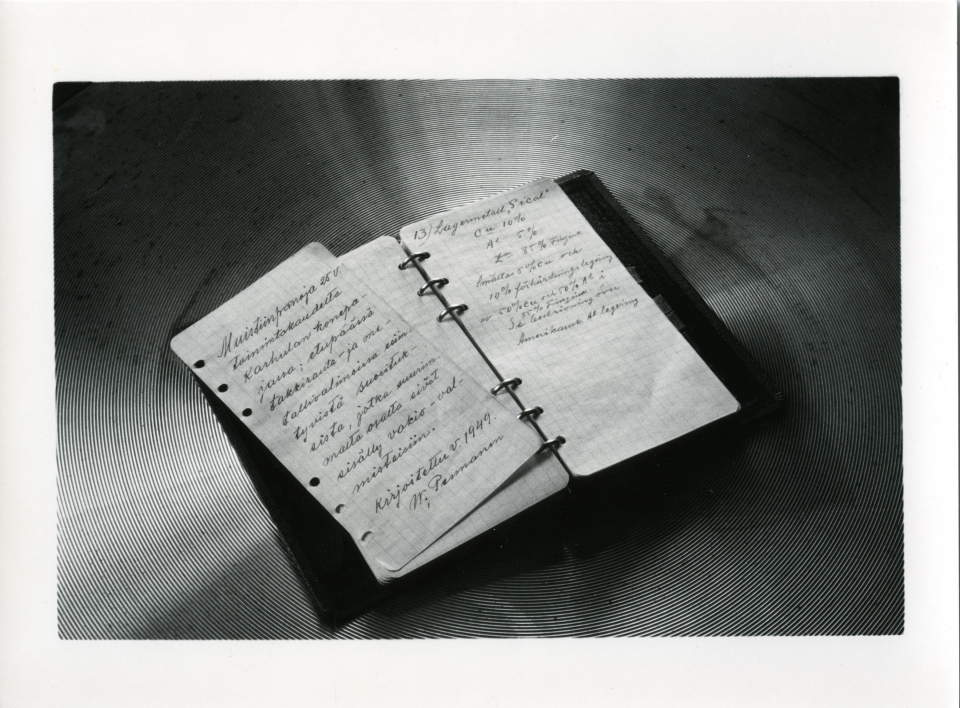 Muistiinpanoja 25 v.
toimintakaudelta
Karhulan konepa-
jassa; etupäässä
takkirauta- ja me-
tallivalimoissa esiin-
tyvistä suosituk-
sista, jotka suurim-
malta osalta eivät
sisälly vakio-val-
misteisiin.
Kirjoitettu v. 1949.
W. Pesmanen
13) Lagermetall "Sical"
Cu 10%
Al 5%
85% Finzink
Smältas 5% Cu och
10% förhärdningslegering
av 50% Cu och 50% Al i
85% Finzink.
Se beskrivning över
Amerikansk Al legering